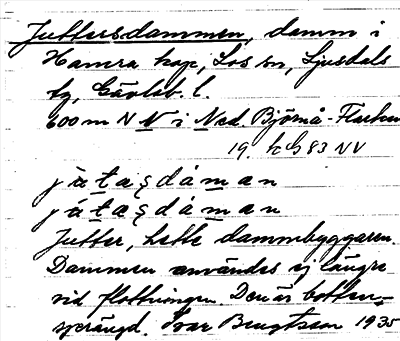 Juttersdammen, damm i
Hamra kap, Los sn, Ljusdals
tg, Gävleb. l.
600 m N N i Ned. Björnå-
19. 83 NV
jùtaşdáman
jútaşdáman
Jutter, hette dammbyggaren.
Dammen användes ej längre
vid flottningen. Den är botten-
sprängd. Ivar Bengtsson 1935